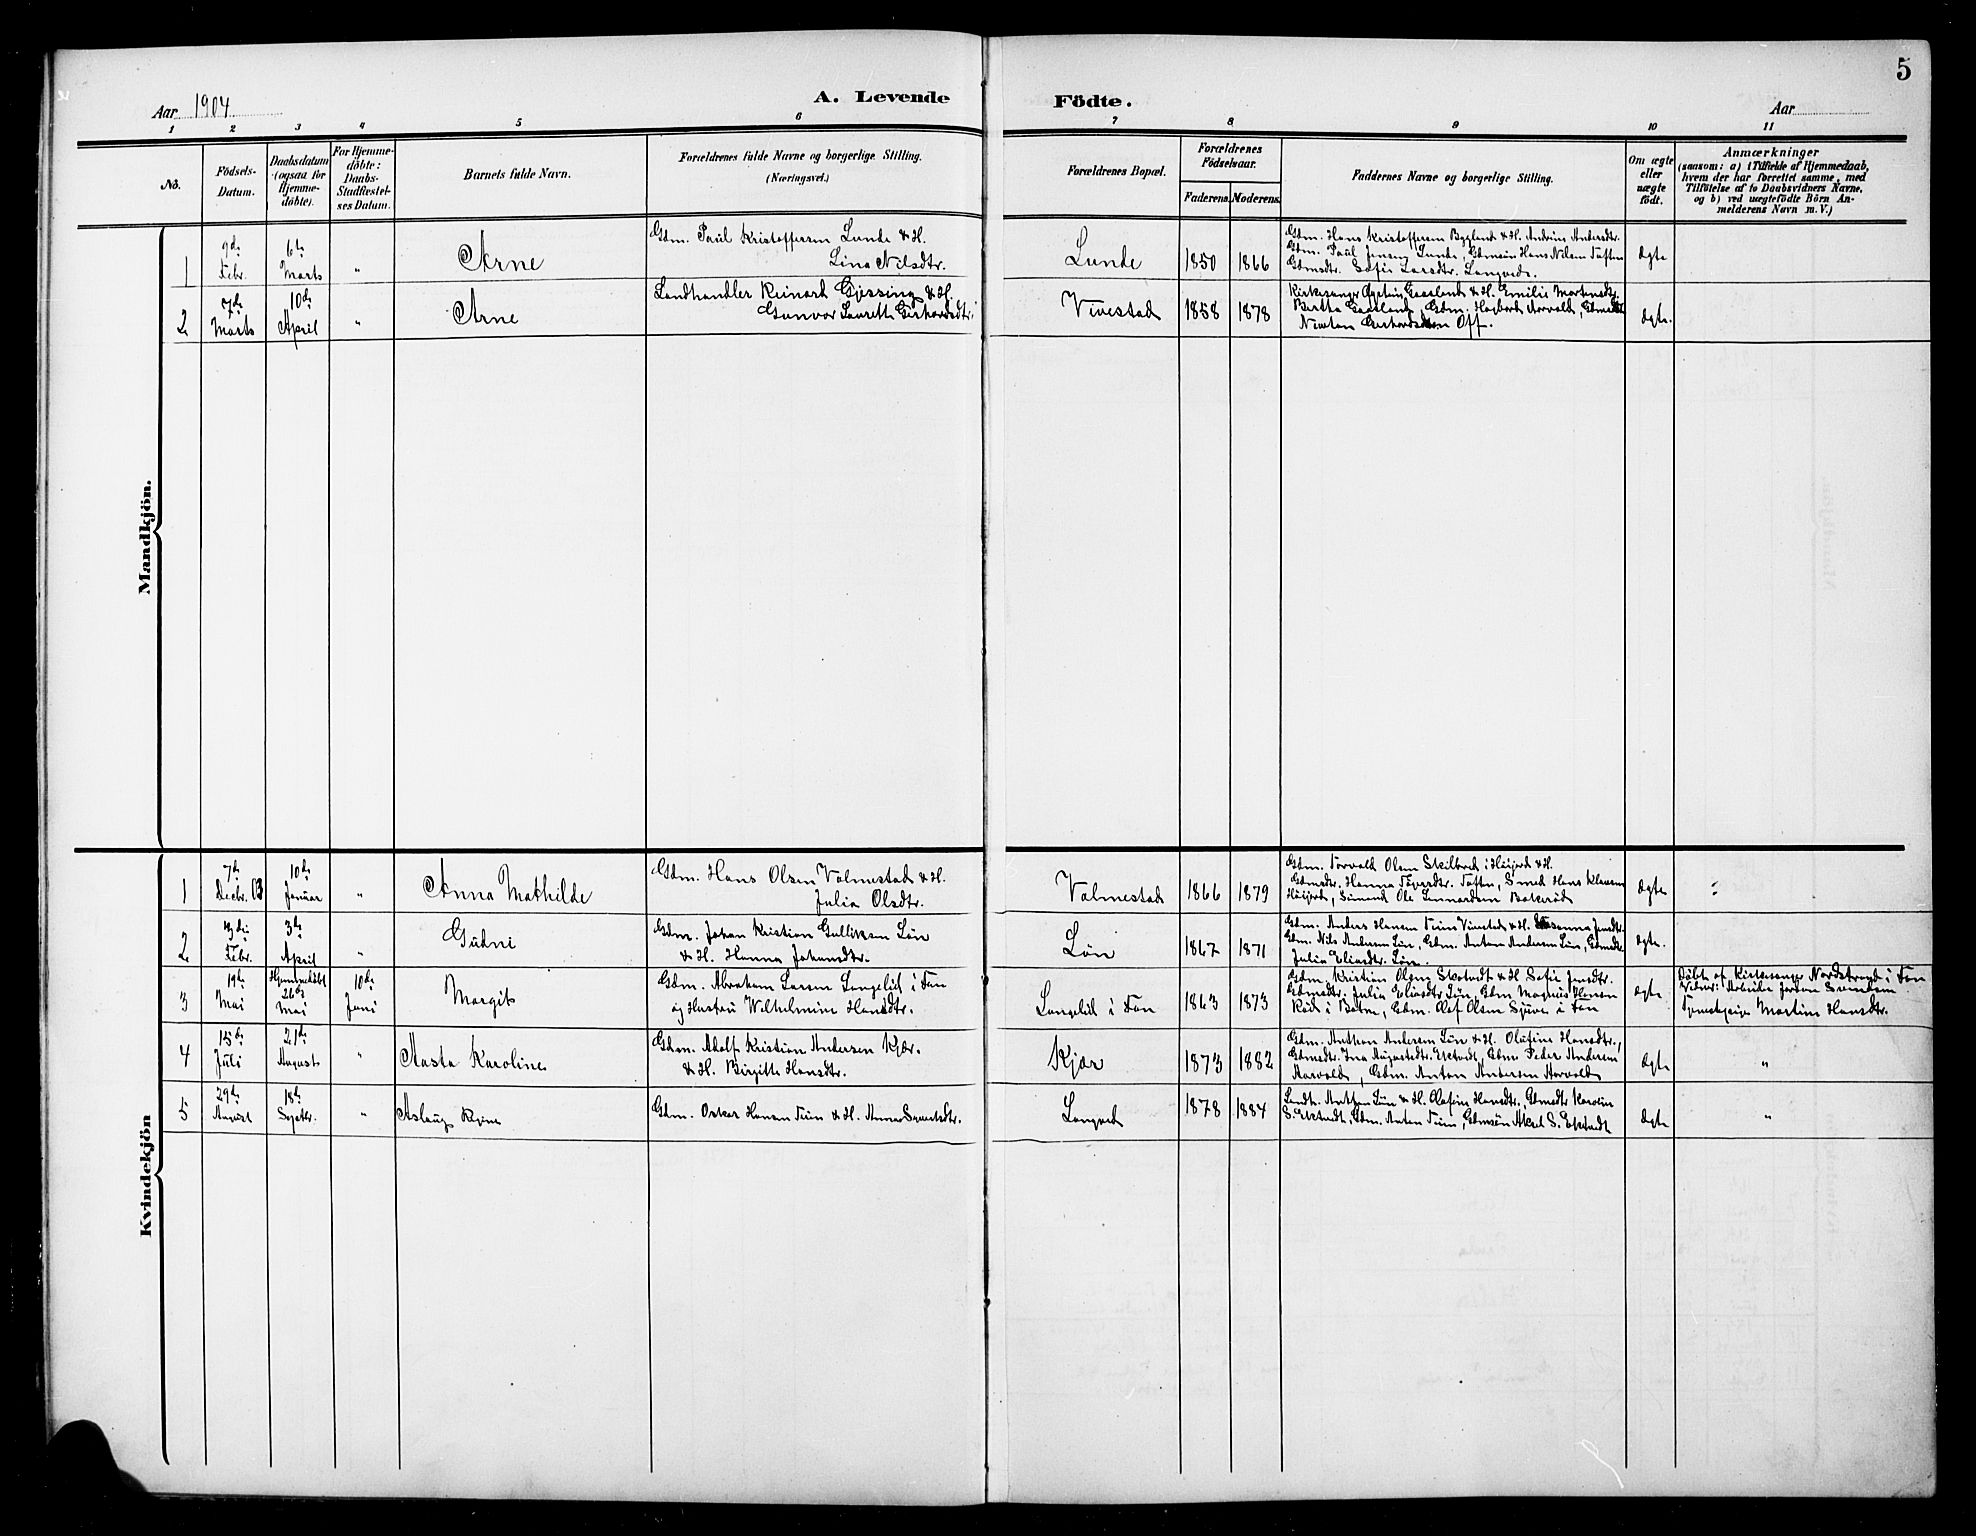 5
Aar 1904
A. Levende
Födte.
Aar
1 2 3 4 5 6 7 8 9 10 11
No.
Födsels-
Datum.
Daabsdatum
(ogsaa for
Hjemme-
döbte).
For Hjemme-
döbte:
Daabs-
Stadfæstel-
ses Datum.
Barnets fulde Navn.
Forældrenes fulde Navne og borgerlige Stilling.
(Næringsvei.)
Forældrenes Bopæl.
Forældrenes
Födselsaar.
Faderens. Moderens.
Faddernes Navne og borgerlige Stilling.
Om ægte
eller
uægte
födt.
Anmærkninger
(saasom: a) i Tilfælde af Hjemmedaab,
hvem der har forrettet samme, med
Tilföielse af to Daabsvidners Navne.
og b) ved uægtefödte Börn An-
melderens Navn m. V.)
Mandkjön.
1
9de
Febr.
6te
Marts
"
Arne
Gdm. Paul Kristoffersen Lunde & H.
Lina Nilsdtr.
Lunde
1850
1866
Gdm. Hans Kristoffersen Bygland & H. Andrine Andersdtr.
Gdm. Paul Jensen Lunde, Gdmsön Hans Nilsen Tuften
Gdmsdtr. Sofie Larsdtr. Langved.
ægte
2
7de
Marts
10de
April
"
Arne
Landhandler Reinart Gjessing & H.
Gunvor Laurette Gerhardsdtr.
Vivestad
1858
1878
Kirkesanger Øystein Gaasland & H. Emilie Mortensdtr.
Bertha Gaasland, Gdm. Hagbard Aorvald,
Newton Gerhardsen Off.
ægte.
Kvindekjön
1
7de
Decbr. 03
10de
Januar
"
Anna Mathilde
Gdm. Hans Olsen Valmestad & H.
Julia Olsdtr.
Valmestad
1866
1879
Gdm. Torvald Olsen Skilbred i Höijord & H.
Gdmsdtr. Hanna Sörensdtr. Tuften, Smed Hans Klausen
Höijord, Sömand Ole Lennardsen Bakeröd
ægte
2
Febr.
3de
April
"
Gudni
Gdm. Johan Kristian Gulliksen Løn
& H. Hanna Johansdtr.
Løn
1867
1871
Gdm. Anders Hansen Tein Vivestad & H. Susanna Jensdtr.
Gdm. Nils Andersen Løn, Gdm. Anton Andersen Løn, Gdmsdtr.
Julia Eliasdtr. Løn.
ægte.
3
19de
Mai
Hjemmedöbt
26de
Mai
10de
Juni
Margit
Gdm. Abraham Larsen Langelid i Fon
og Hustru Wilhelmine Hansdtr.
Langelid i Fon
1863
1873
Gdm. Kristian Olsen Skotvedt & H. Sofie Jensdtr.
Gdmsdtr. Julia Eliasdtr Løn, Gdm Magnus Hansen
Röd i Botne, Gdm. Olaf Olsen Sjuve i Fon
ægte
Döbt af Kirkesanger Nordstrand i Fon
Vidner: Arbeider Jörgen Svendsen
Tjenestepige Martine Hansdtr.
4
15de
Juli
21de
August
"
Aasta Karoline
Gdm. Adolf Kristian Andersen Kjær.
& H. Birgitte Hansdtr.
Kjær
1873
1882
Gdm. Anthon Andersen Løn & H. Olufine Hansdtr.,
Gdmsdtr. Ina Augustsdtr. Ektvedt, Gdm. Peder Andersen
Aarvold, Gdm. Anton Andersen Aorvold
ægte
"
5
29de
August
18de
Septbr.
"
Aslaug Regine
Gdm. Oskar Hansen Tein & H. Anna Syvertsdtr.
Langved
1878
1884
Landh. Anthon Løn & H. Olufine Hansdtr, Gdmsdtr Karoline
S. Ektvedt, Gdm. Anton Tein, Gdmsön Aksel S. Ektvedt
ægte
"